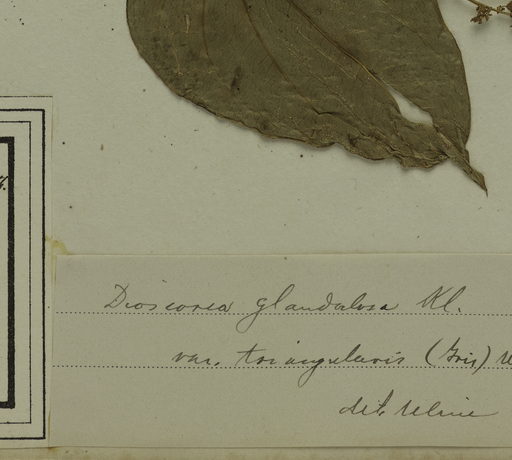 Dioscorea glandulosa Kl.
var. triangularis (Gris)
det. Uline